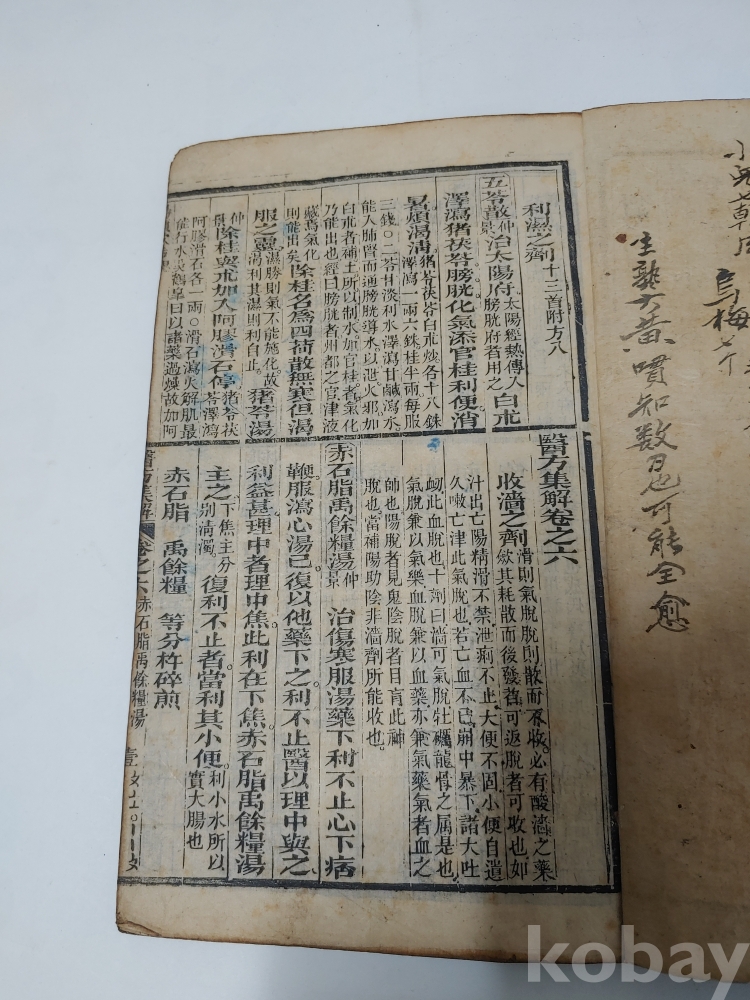 利濕之劑十三首附方八
五苓散仲景治太陽府太陽經熱傳入膀胱府者用之白朮
澤瀉猪茯苓膀胱化氣添官桂利便消
暑煩渴清猪苓茯苓白朮炒各十八銖澤瀉一兩六銖桂半兩每服
三錢○二苓甘淡利水澤瀉甘鹹瀉水能入肺腎而通膀胱導水以泄火邪加
白朮者補土所以制水加官桂者氣化乃能出也經曰膀胱者州都之官津液
藏焉氣化則能出矣除桂名爲四苓散無寒但渴
服之靈濕勝則氣不能施化故渴利其濕則利自止猪苓湯
仲景除桂與朮加入阿膠滑石停猪苓茯苓澤瀉
阿膠滑石各一兩○滑石瀉火解肌最能行水吳鶴皐曰以諸藥過燥故加阿
醫方集解卷之六
收濇之劑滑則氣脫脫則散而不收必有酸濇之藥斂其耗散而後發者可返脫者可收也如
汗出亡陽精滑不禁泄痢不止大便不固小便自遺久嗽亡津此氣脫也若亡血不已崩中暴下諸大吐
衄此血脫也十劑曰濇可氣脫牡礪龍骨之屬是也氣脫兼以氣藥血脫兼以血藥亦兼氣藥氣者血之
帥也陽脫者見鬼陰脫者目盲此神脫也當補陽助陰非濇劑所能收也
赤石脂禹餘糧湯仲景治傷寒服湯藥下利不止心下痞
鞕服瀉心湯已復以他藥下之利不止醫以理中與之
利益甚理中者理中焦此利在下焦赤石脂禹餘糧湯
主之下焦主分別淸濁復利不止者當利其小便利小水所以實大腸也
赤石脂 禹餘糧 等分杵碎煎
醫方集解 卷之六 赤石脂禹餘糧湯 壹
烏梅
生熟大黃
可能全愈
kobay